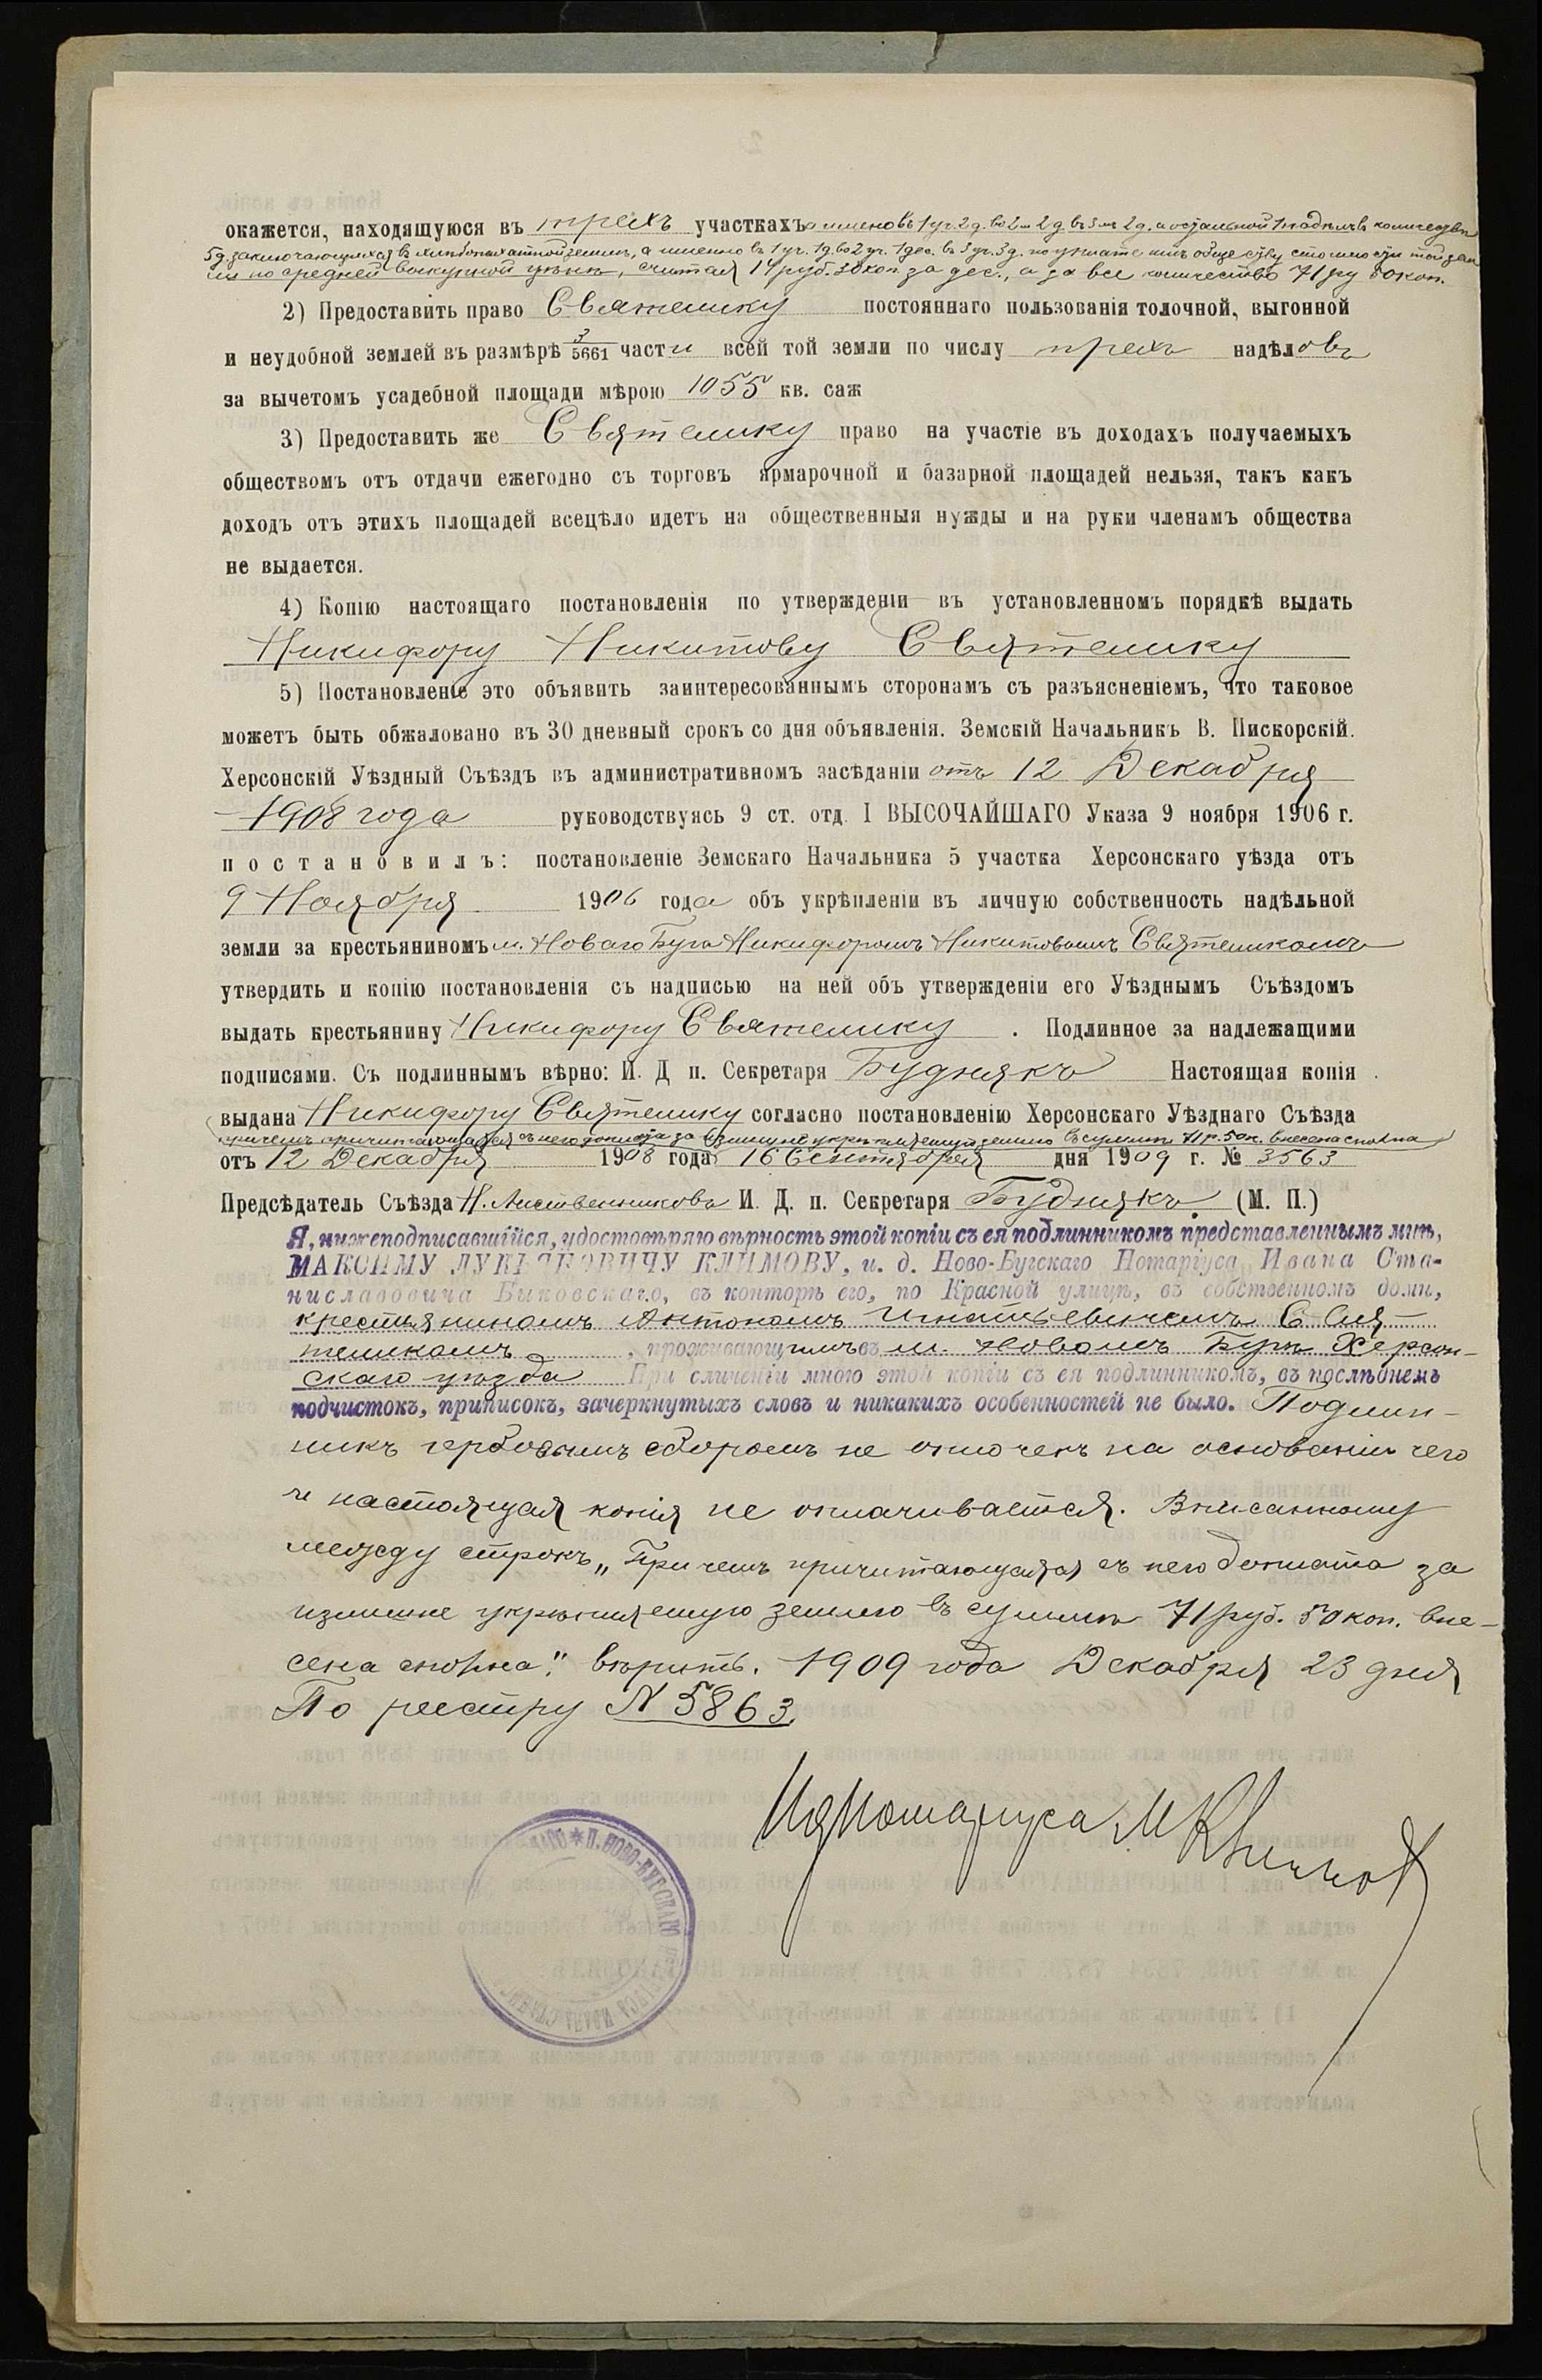 окажется, находящуюся въ трехъ участкахъ а именно въ 1 уч. 2 д. во 2-мъ 2 д. въ 3-мъ 2 д, а остальной 1 надѣлъ въ количествѣ
5 д. заключающихся въ хлѣбопахатной землѣ, а именно въ 1 уч. 1 д. во 2 уч. 1 дес. въ 3 уч. 3 д. по уплатѣ имъ обществу стоимости той зем
ли по средней выкупной цѣнѣ, считая 14 руб. 30 коп за дес., а за все количество 71 ру 50 коп.
2) Предоставить право Святелику постояннаго пользованія толочной, выгонной
и неудобной землей въ размѣрѣ 3/5661 части всей той земли по числу трехъ надѣловъ
за вычетомъ усадебной площади мѣрою 1055 кв. саж
3) Предоставить же Святелику право на участіе въ доходахъ получаемыхъ
обществомъ отъ отдачи ежегодно съ торговъ ярмарочной и базарной площадей нельзя, такъ какъ
доходъ отъ этихъ площадей всецѣло идетъ на общественныя нужды и на руки членамъ общества
не выдается.
4) Копію настоящаго постановленія по утвержденіи въ установленномъ порядкѣ выдать
Никифору Никитову Святелику
5) Постановленіе это объявить заинтересованнымъ сторонамъ съ разъясненіемъ, что таковое
можетъ быть обжаловано въ 30 дневный срокъ со дня объявленія. Земскій Начальникъ В. Пискорскій.
Херсонскій Уѣздный Съѣздъ въ административномъ засѣданіи отъ 12 Декабря
1908 года руководствуясь 9 ст. отд. I ВЫСОЧАЙШАГО Указа 9 ноября 1906 г.
постановилъ: постановленіе Земскаго Начальника 5 участка Херсонскаго уѣзда отъ
9 Ноября 1906 года объ укрѣпленіи въ личную собственность надѣльной
земли за крестьяниномъ м. Новаго Буга Никифоромъ Никитовымъ Святеликомъ
утвердить и копію постановленія съ надписью на ней объ утвержденіи его Уѣзднымъ Съѣздомъ
выдать крестьянину Никифору Святелику . Подлинное за надлежащими
подписями. Съ подлиннымъ вѣрно: И. Д п. Секретаря Буднякъ Настоящая копія
выдана Никифору Святелику согласно постановленію Херсонскаго Уѣзднаго Съѣзда
причемъ причитающаяся съ него доплата за излишне укрѣпляемую землю въ суммѣ 71 р. 50 к. внесена сполна
отъ 12 Декабря 1908 года 16 Сентября дня 1909 г. № 3563
Предсѣдатель Съѣзда Н. Лиственниковъ И. Д. п. Секретаря Буднякъ. (М. П.)
Я, нижеподписавшійся, удостовѣряю вѣрность этой копіи съ ея подлинникомъ представленнымъ мнѣ,
МАКСИМУ ЛУКЬЯНОВИЧУ КЛИМОВУ, и. д. Ново-Бугскаго Нотаріуса Ивана Ста-
ниславовича Быковскаго, въ конторѣ его, по Красной улицѣ, въ собственномъ домѣ,
крестьяниномъ Антономъ Игнатьевичемъ Свя-
теликомъ , проживающимъ въ м. Новомъ Бугѣ Херсон-
скаго уѣзда При сличеніи мною этой копіи съ ея подлинникомъ, въ послѣднемъ
подчистокъ, приписокъ, зачеркнутыхъ словъ и никакихъ особенностей не было. Подлин-
никъ гербовымъ сборомъ не оплоченъ на основаніи чего
и настоящая копія не оплачивается. Вписанному
между строкъ „Причемъ причитающаяся съ него доплата за
излишне укрѣпляемую землю въ суммѣ 71 руб. 50 коп. вне-
сена сполна". вѣрить. 1909 года Декабря 23 дня
По реестру N 5863.
Ид Нотаріуса М Климов